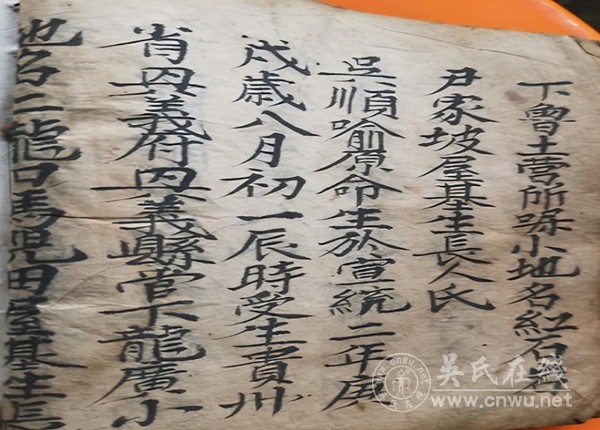 下曾土营所㖼小地名紅石
尹家坡屋基生長人氏
吳順喻原命生於宣統二年庚
戌歲八月初一辰時受生貴州
省興義府興義縣管下龍廣小
地名二龍口馬児田屋基生長
吳氏在綫
www.cnwu.net